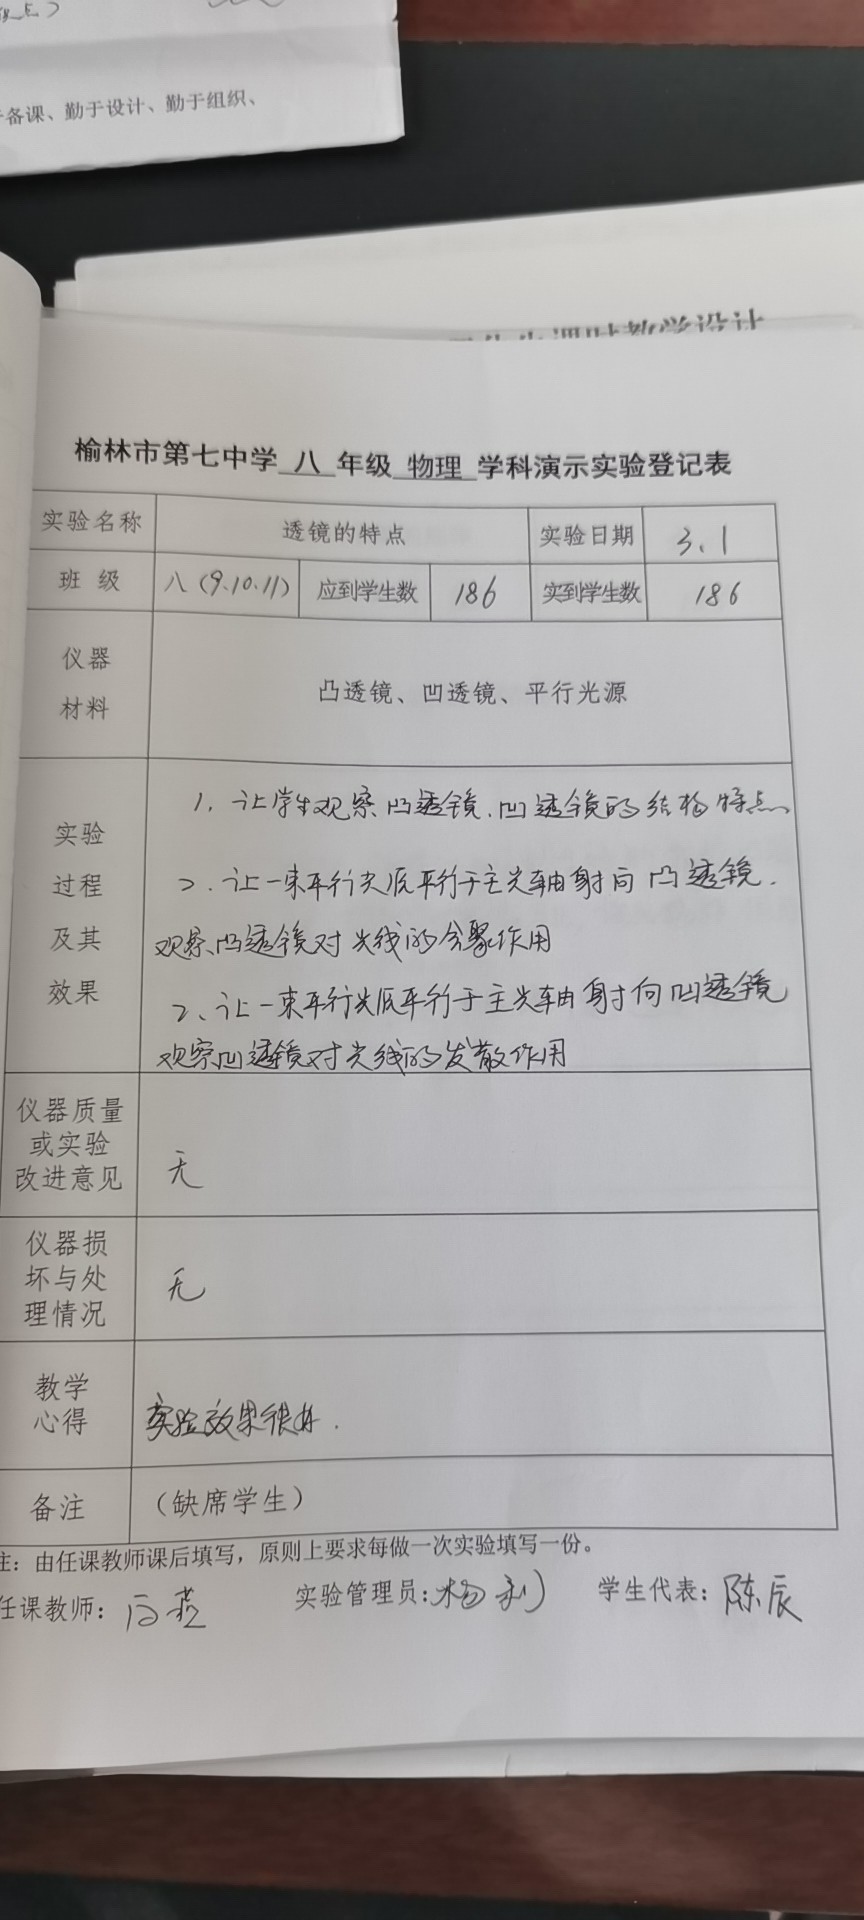 备课、勤于设计、勤于组织、
课时教学设计
榆林市第七中学 八 年级 物理 学科演示实验登记表
实验名称 透镜的特点 实验日期 3.1
班 级 八(9.10.11) 应到学生数 186 实到学生数 186
仪器
材料
凸透镜、凹透镜、平行光源
实验
过程
及其
效果
1. 让学生观察凸透镜.凹透镜的结构特点、
2. 让一束平行光源平行于主光轴射向凸透镜.
观察凸透镜对光线的会聚作用
2、让一束平行光源平行于主光轴射向凹透镜
观察凹透镜对光线的发散作用
仪器质量
或实验
改进意见
无
仪器损
坏与处
理情况
无
教学
心得
实验效果很好.
备注 (缺席学生)
注：由任课教师课后填写，原则上要求每做一次实验填写一份。
任课教师： 实验管理员:杨利 学生代表：陈辰